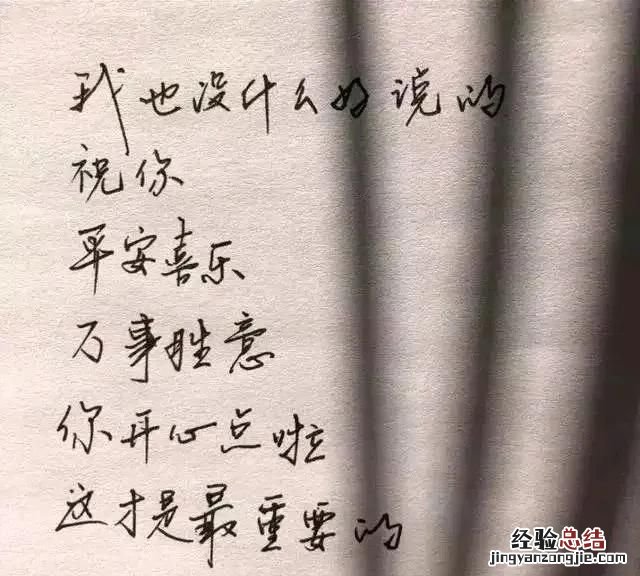 我也没什么好说的
祝你
平安喜乐
万事胜意
你开心点啦
这才是最重要的
经验总结
jingyanzongjie.com